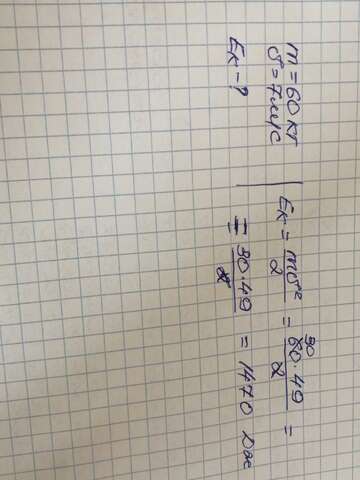 m = 60 кг
υ = 7 м/с
Eк - ?
Eк = mυ²/2 = 60·49/2 =
30
= 30·49/2 = 1470 Дж